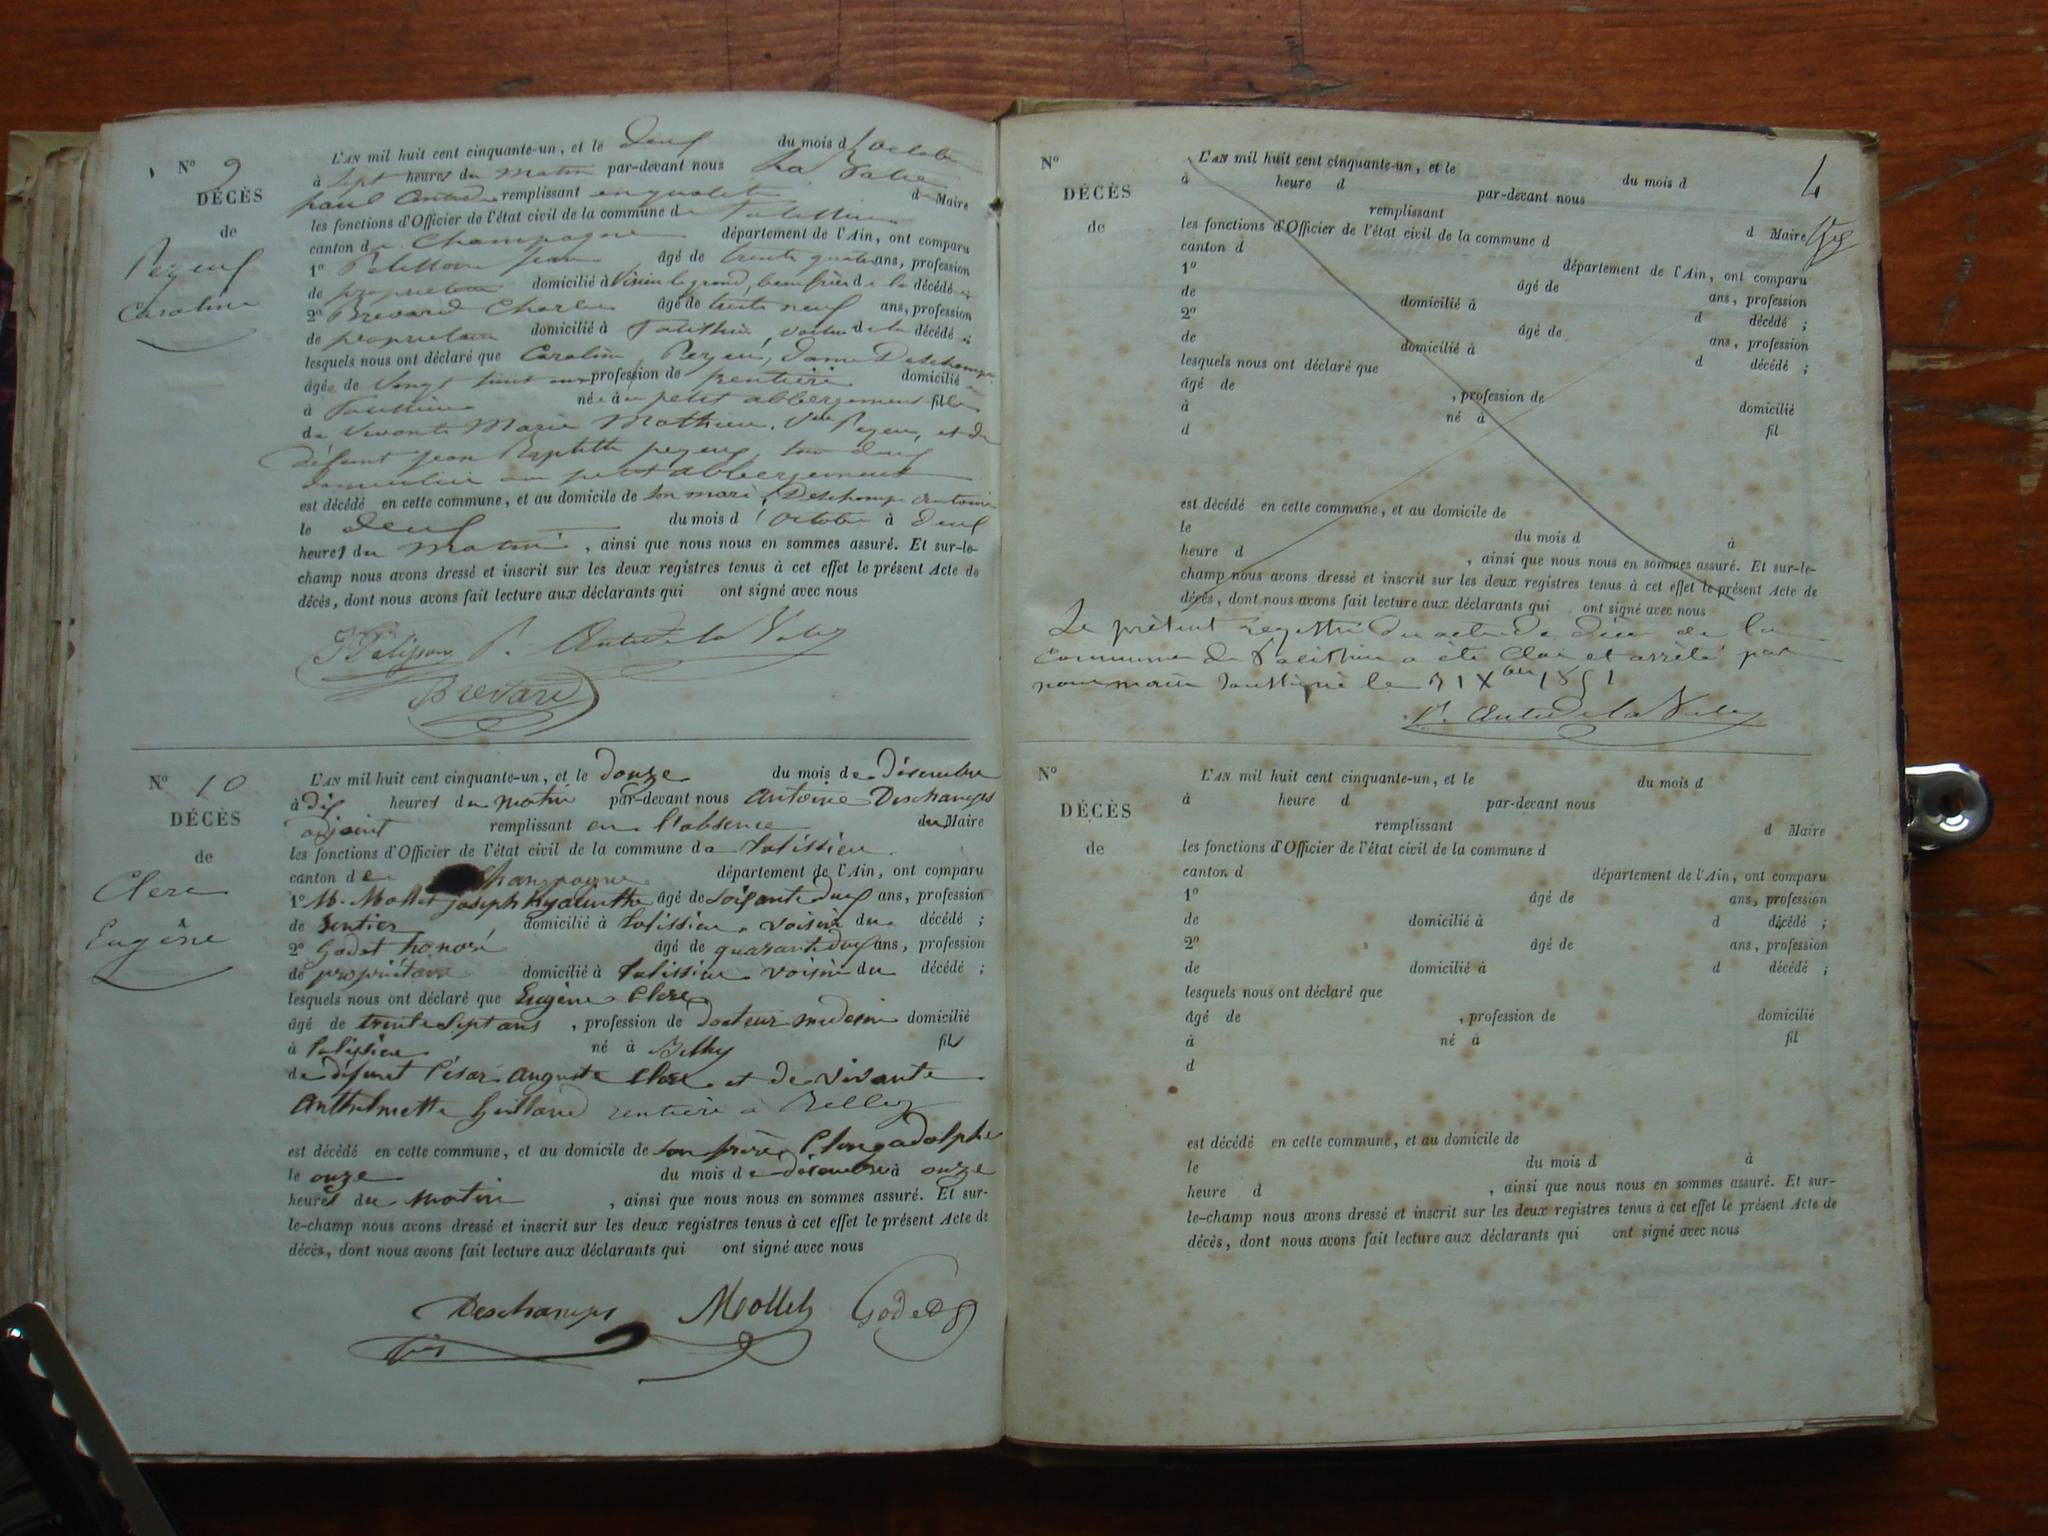 N° 9
DÉCÈS
de
Pezeux
Caroline
L'AN mil huit cent cinquante-un, et le deux du mois d'octobre
à sept heures du matin par-devant nous
remplissant en qualité de Maire
les fonctions d'Officier de l'état civil de la commune de Talissieu
canton de Champagne département de l'Ain, ont comparu
1° Pelisson Jean âgé de trente quatre ans, profession
de proprietaire domicilié à Virieu le grand, beau frère de la décédée
2° Brevard Charles âgé de trente neuf ans, profession
de proprietaire domicilié à Talissieu, voisin de la décédée
lesquels nous ont déclaré que Caroline Pezeux, Dame Deschamps
âgée de vingt huit ans profession de rentière domicilié
à Talissieu née à au petit abbergement fille
de vivante Marie Mathieu, Vve Pezeux, et de
défunt Jean Baptiste pezeux, tous deux
domicilié au petit abbergement
est décédé en cette commune, et au domicile de son mari, Deschamps Antoine
le deux du mois d'octobre à deux
heures du matin, ainsi que nous nous en sommes assuré. Et sur-le-
champ nous avons dressé et inscrit sur les deux registres tenus à cet effet le présent Acte de
décès, dont nous avons fait lecture aux déclarants qui ont signé avec nous
Brevard
N° 10
DÉCÈS
de
Clerc
Eugène
L'AN mil huit cent cinquante-un, et le douze du mois de Décembre
à dix heures du matin par-devant nous Antoine Deschamps
adjoint remplissant en l'absence du Maire
les fonctions d'Officier de l'état civil de la commune de Talissieu
canton de Champagne département de l'Ain, ont comparu
1° M. Mollet joseph hyacinthe âgé de soixante deux ans, profession
de Rentier domicilié à talissieu, voisin du décédé ;
2° Godet honoré âgé de quarante deux ans, profession
de propriétaire domicilié à talissieu voisin du décédé ;
lesquels nous ont déclaré que Eugène Clerc
âgé de trente Sept ans, profession de docteur médecin domicilié
à talissieu né à Belley fils
de défunt César Auguste Clerc et de vivante
Anthelmette Guillard rentière à Belley
est décédé en cette commune, et au domicile de son frère Clerc adolphe
le onze du mois de décembre à onze
heures du matin, ainsi que nous nous en sommes assuré. Et sur-
le-champ nous avons dressé et inscrit sur les deux registres tenus à cet effet le présent Acte de
décès, dont nous avons fait lecture aux déclarants qui ont signé avec nous
Deschamps Mollet Godet
N°
DÉCÈS
de
4
L'AN mil huit cent cinquante-un, et le du mois d
à heure d par-devant nous
remplissant d Maire
les fonctions d'Officier de l'état civil de la commune d
canton d département de l'Ain, ont comparu
1° âgé de ans, profession
de domicilié à d décédé ;
2° âgé de ans, profession
de domicilié à d décédé ;
lesquels nous ont déclaré que
âgé de , profession de domicilié
à né à fil
d
est décédé en cette commune, et au domicile de
le du mois d à
heure d , ainsi que nous nous en sommes assuré. Et sur-le-
champ nous avons dressé et inscrit sur les deux registres tenus à cet effet le présent Acte de
décès, dont nous avons fait lecture aux déclarants qui ont signé avec nous
Le présent registre des actes de décès de la
commune de Talissieu a été clos et arrêté par
nous maire soussigné le 31 Xbre 1851
N°
DÉCÈS
de
L'AN mil huit cent cinquante-un, et le du mois d
à heure d par-devant nous
remplissant d Maire
les fonctions d'Officier de l'état civil de la commune d
canton d département de l'Ain, ont comparu
1° âgé de ans, profession
de domicilié à d décédé ;
2° âgé de ans, profession
de domicilié à d décédé ;
lesquels nous ont déclaré que
âgé de , profession de domicilié
à né à fil
d
est décédé en cette commune, et au domicile de
le du mois d à
heure d , ainsi que nous nous en sommes assuré. Et sur-
le-champ nous avons dressé et inscrit sur les deux registres tenus à cet effet le présent Acte de
décès, dont nous avons fait lecture aux déclarants qui ont signé avec nous